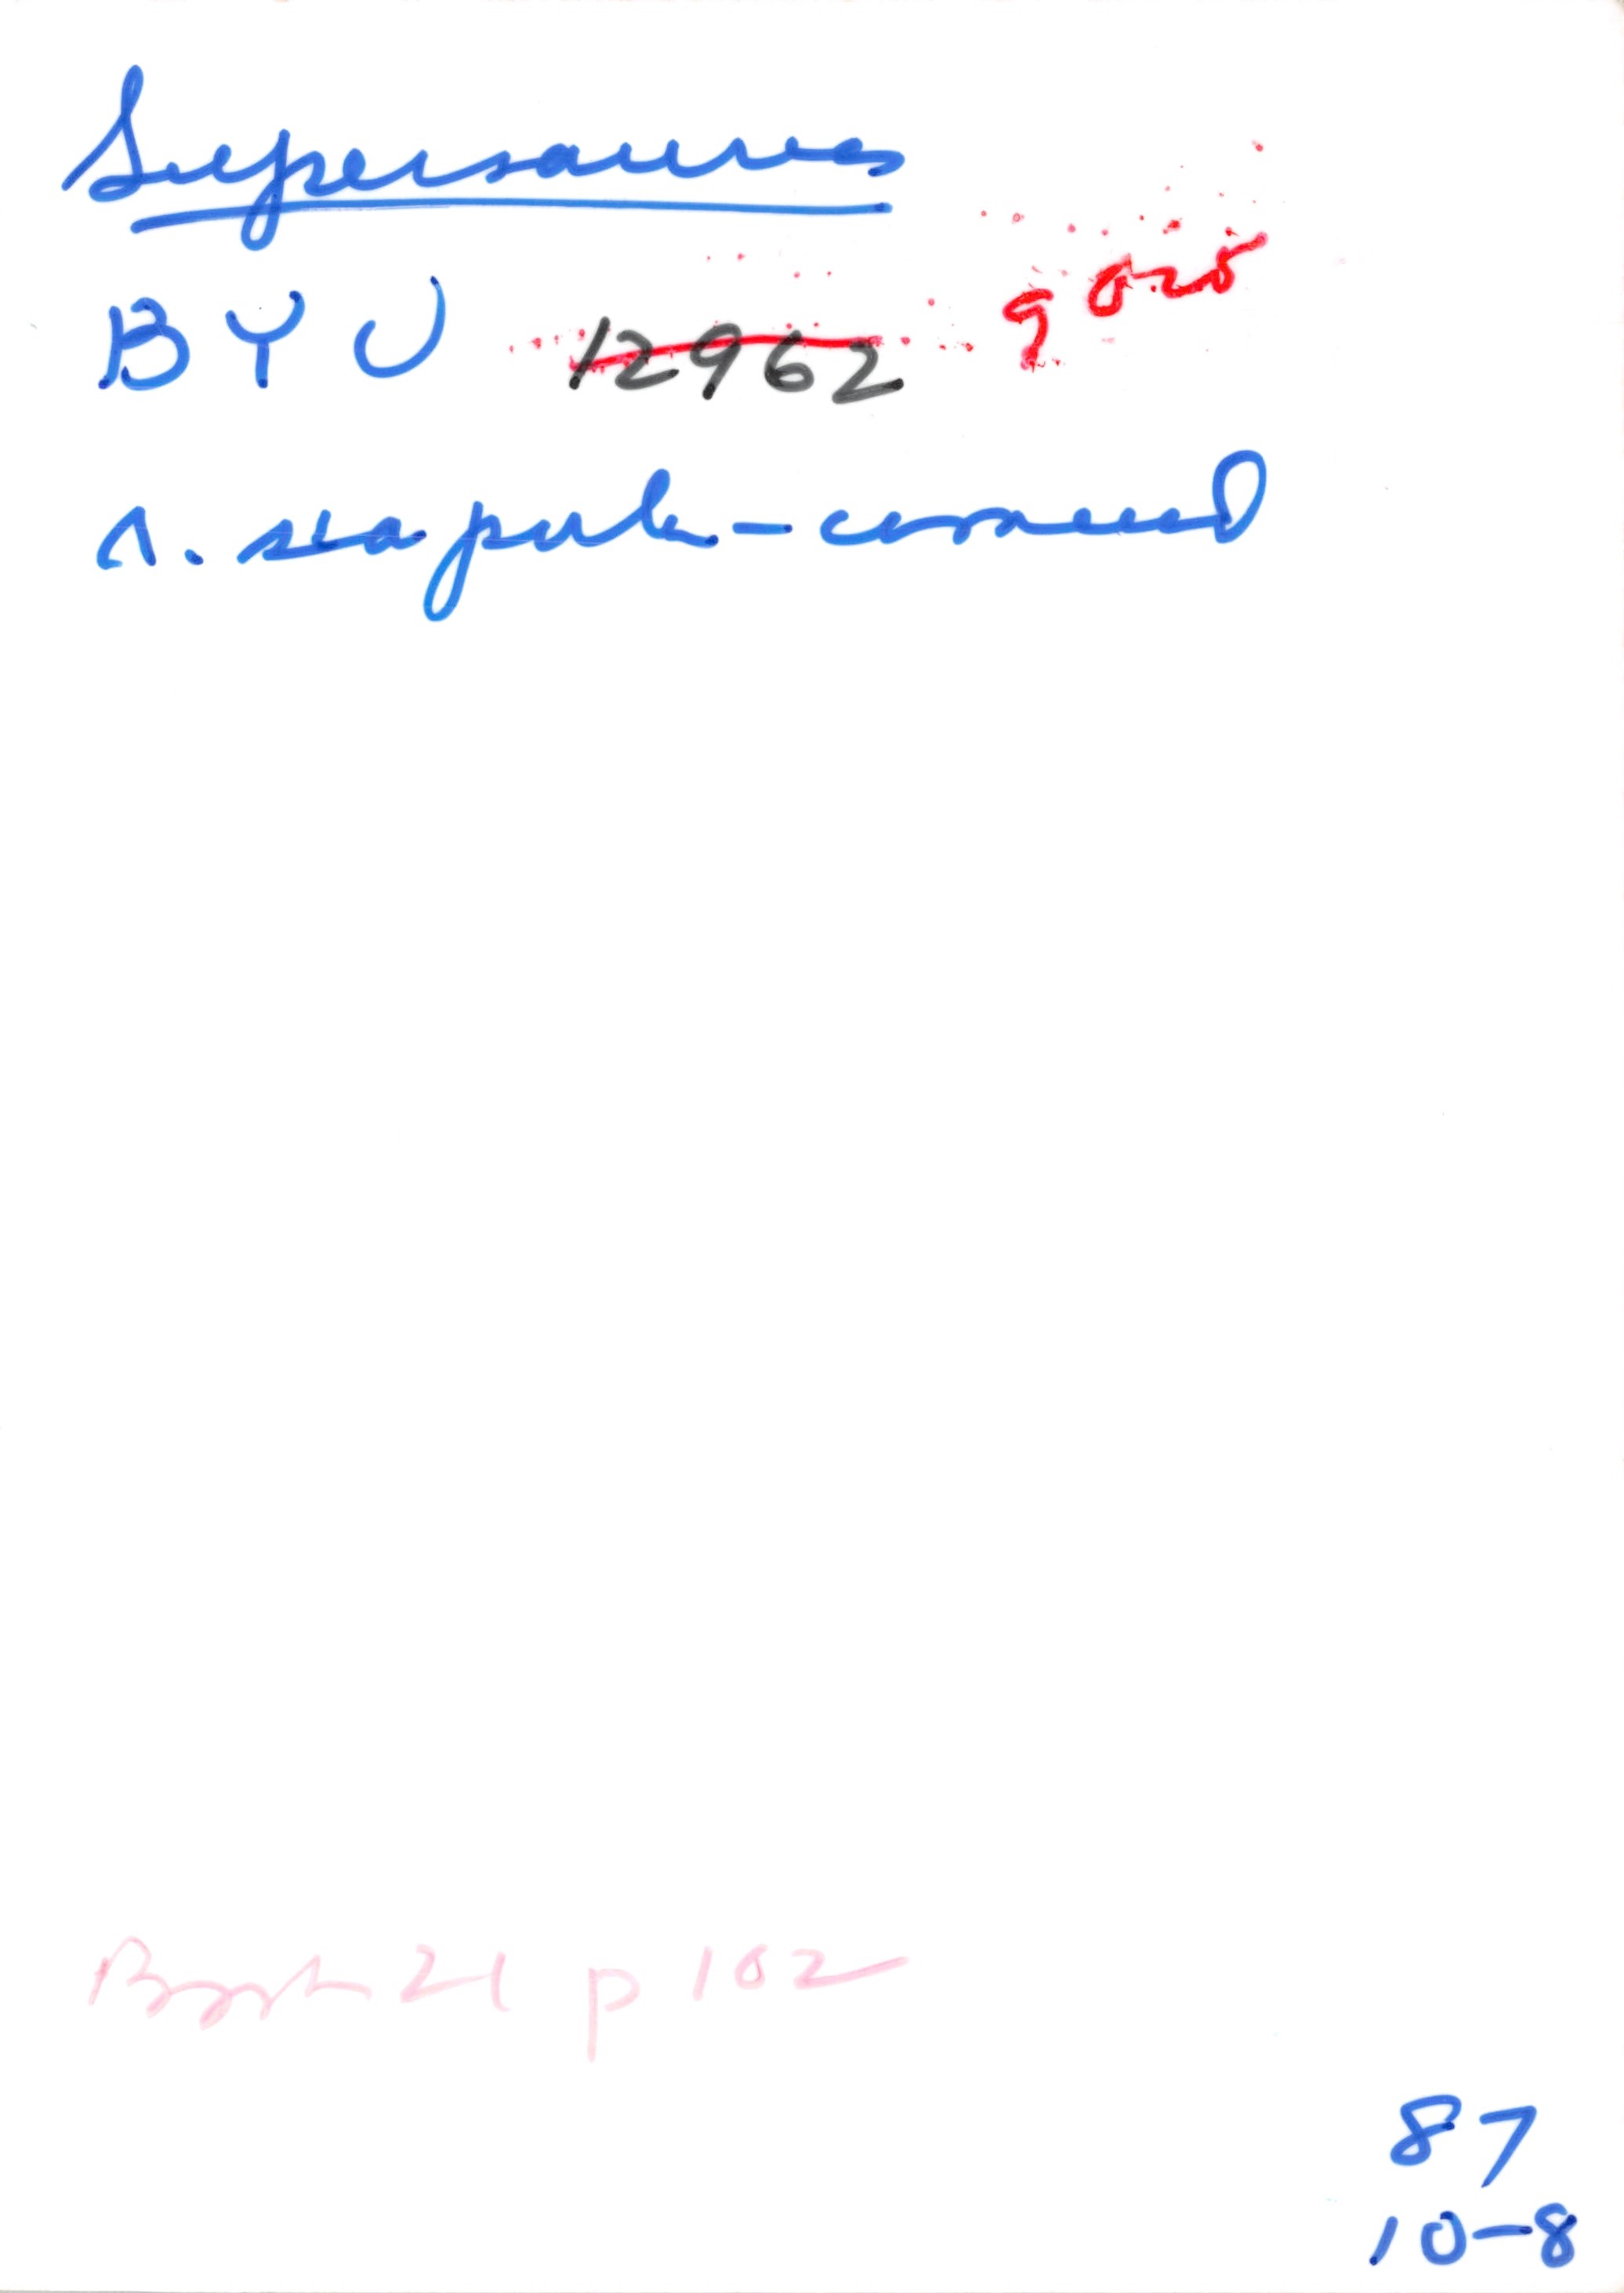 Supersaurus
BYU 12962 9025
s. scapulo-coracoid
Book 21 p 102
87
10-8